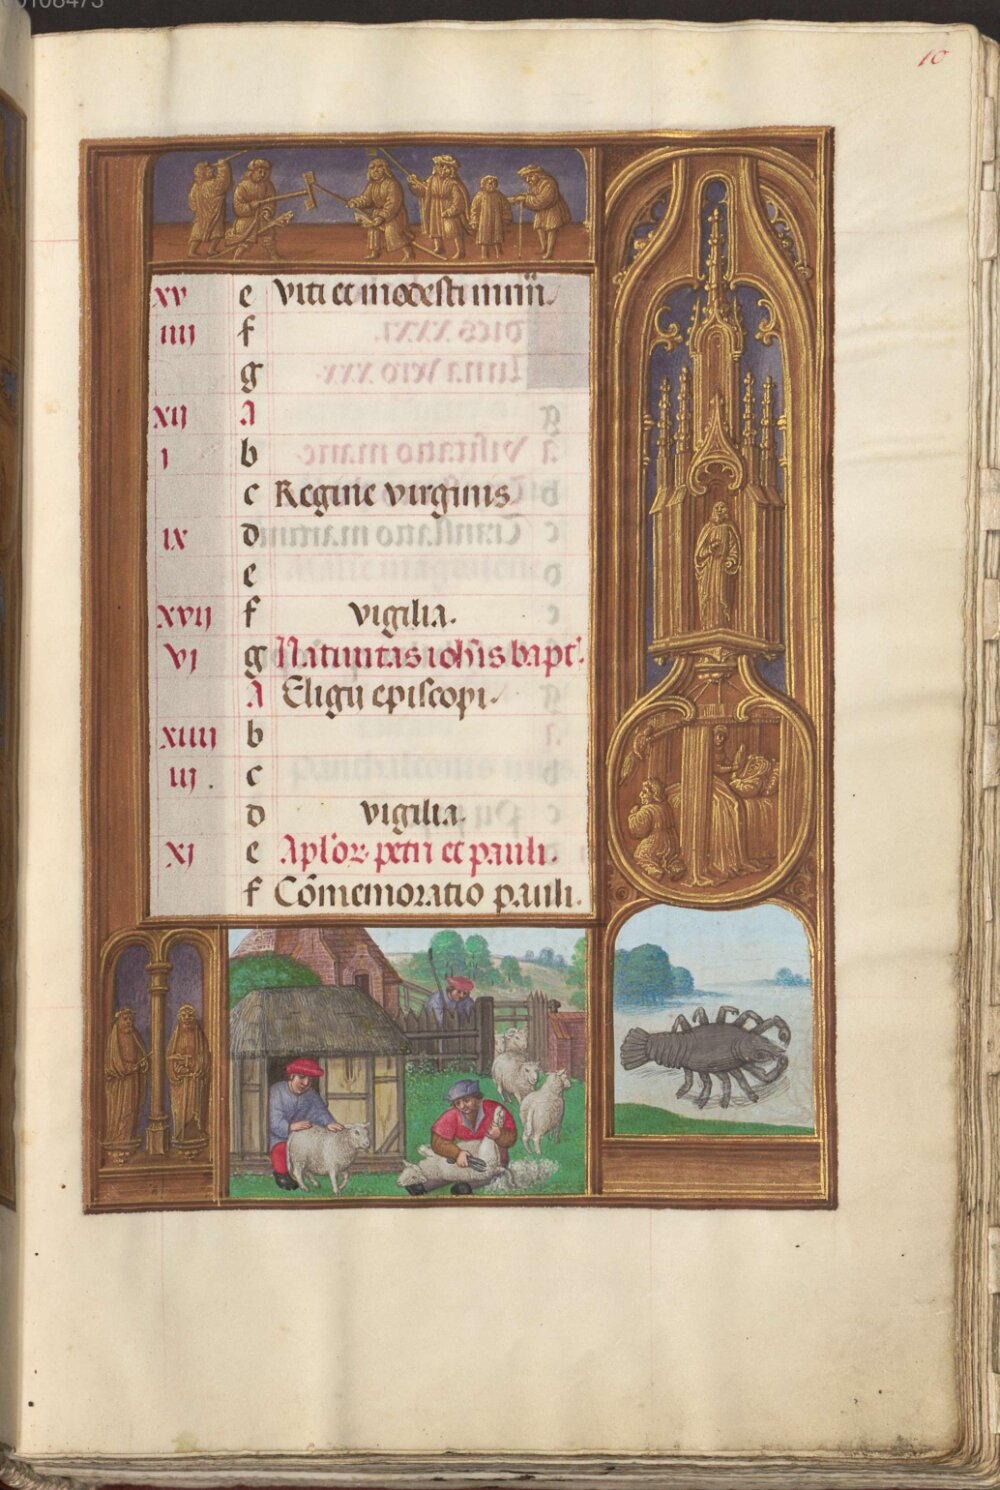 00108473
10
xv e Viti et modesti mrm̄.
iiij f
g
xij A
j b
c Regine virginis
ix d
e
xvij f vigilia.
vj g Natiuitas iohis bapt.
A Eligij episcopi.
xiiij b
iij c
d vigilia.
xj e Aplor petri et pauli.
f Cōmemoratio pauli.